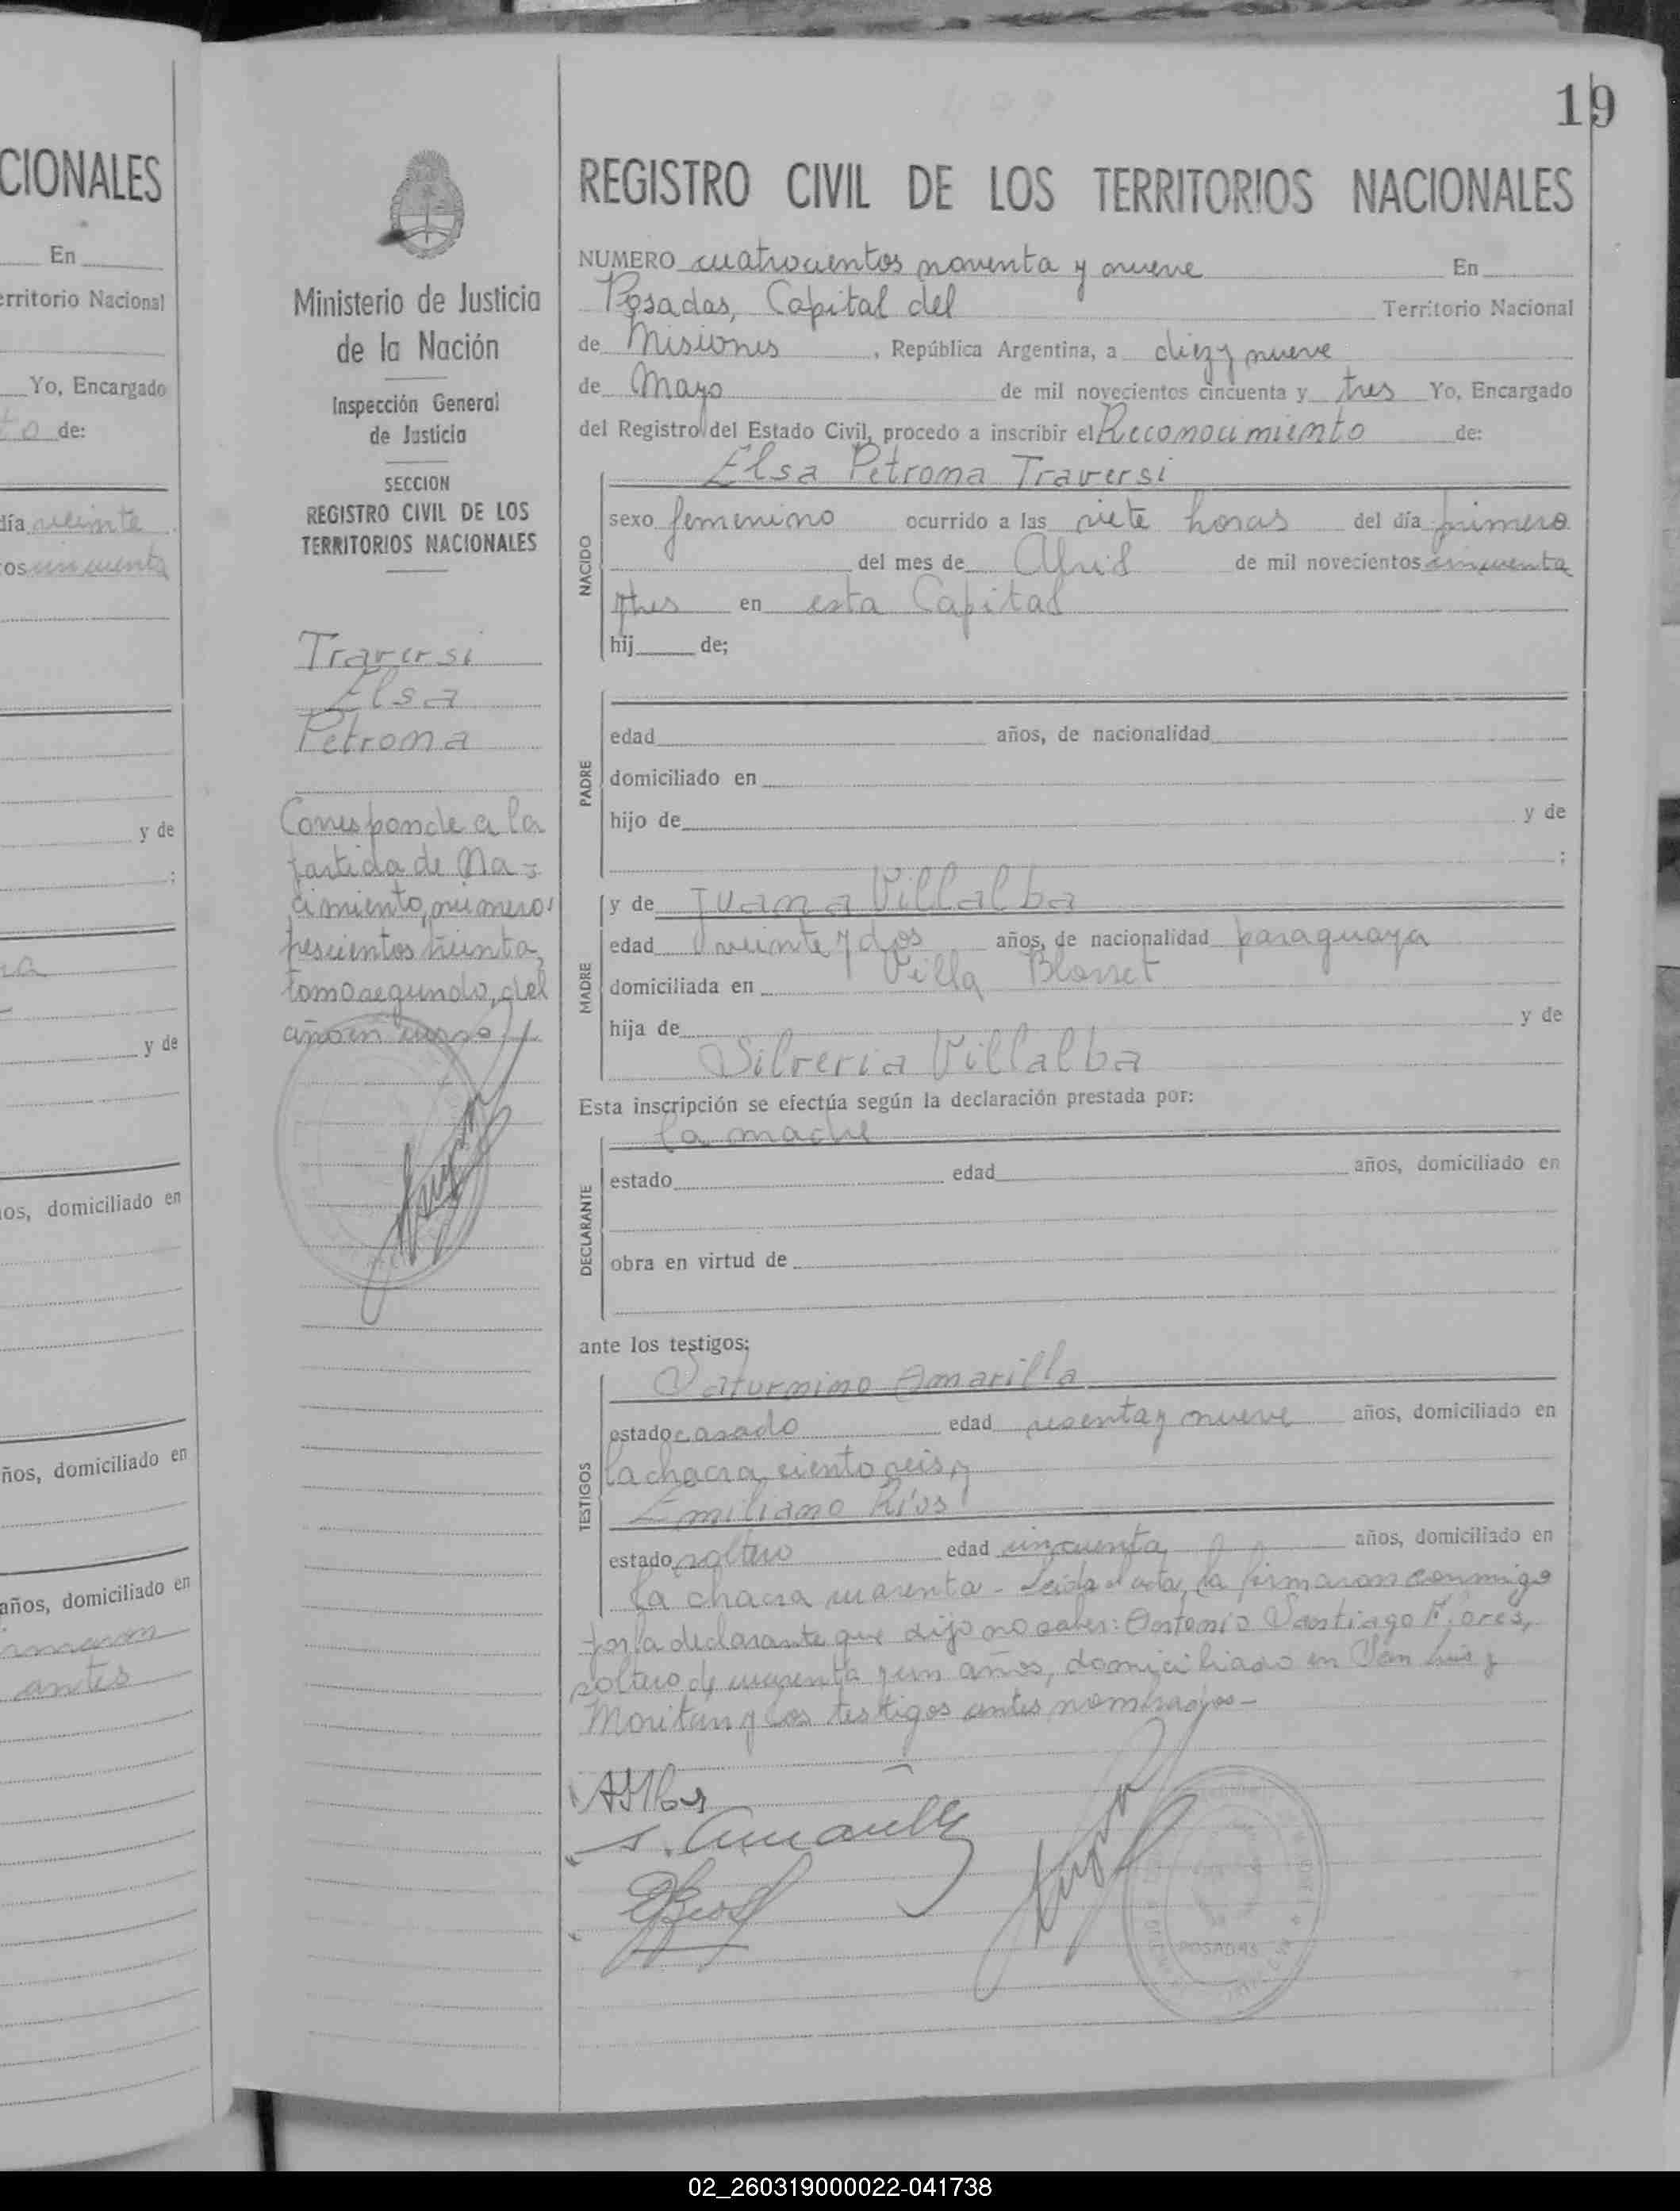 CIONALES
En
erritorio Nacional
Yo, Encargado
de:
día veinte
os cincuenta
y de
;
y de
ios, domiciliado en
ños, domiciliado en
años, domiciliado en
antes
19
Ministerio de Justicia
de la Nación
Inspección General
de Justicia
SECCION
REGISTRO CIVIL DE LOS
TERRITORIOS NACIONALES
Traversi
Elsa
Petrona
Corresponde a la
partida de Na-
cimiento, número
trescientos treinta,
tomo segundo, del
año en curso
REGISTRO CIVIL DE LOS TERRITORIOS NACIONALES
NUMERO cuatrocientos noventa y nueve En
Posadas, Capital del Territorio Nacional
de Misiones, República Argentina, a diez y nueve
de Mayo de mil novecientos cincuenta y tres Yo, Encargado
del Registro del Estado Civil, procedo a inscribir el Reconocimiento de:
Elsa Petrona Traversi
NACIDO
sexo femenino ocurrido a las siete horas del día primero
del mes de Abril de mil novecientos cincuenta
y tres en esta Capital
hij de;
PADRE
edad años, de nacionalidad
domiciliado en
hijo de y de
;
MADRE
y de Juana Villalba
edad veinte y dos años, de nacionalidad paraguaya
domiciliada en Villa Blosset
hija de y de
Silveria Villalba
Esta inscripción se efectúa según la declaración prestada por:
la madre
DECLARANTE
estado edad años, domiciliado en
obra en virtud de
ante los testigos:
TESTIGOS
Saturnino Amarilla
estado casado edad sesenta y nueve años, domiciliado en
la chacra ciento seis, y
Emiliano Ríos
estado soltero edad cincuenta años, domiciliado en
la chacra cuarenta - Leída el acta, la firmaron conmigo
por la declarante que dijo no saber: Antonio Santiago Flores,
soltero de cuarenta y un años, domiciliado en San Luis y
Moritan y los testigos antes nombrados -
S. Amarilla
POSADAS
02_260319000022-041738